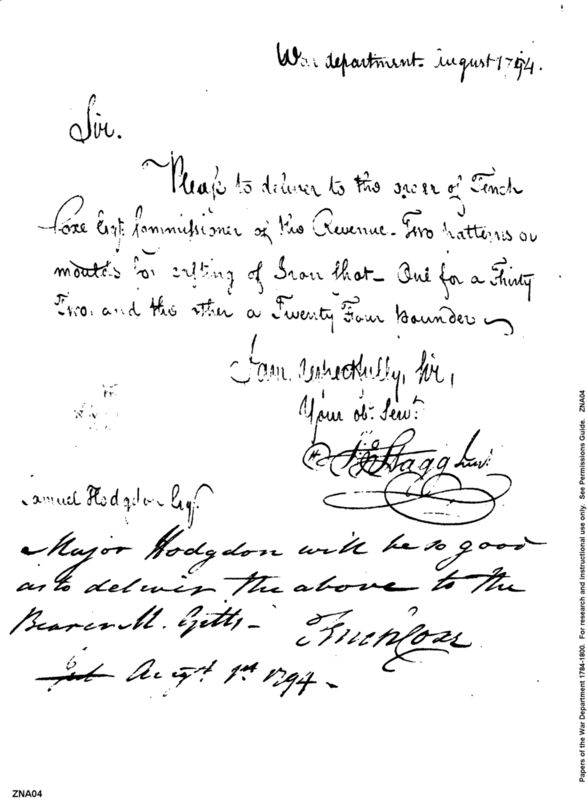 War department. August 1794.
Sir.
Please to deliver to the order of Tench
Coxe Esqr. Commissioner of the Revenue. Two patterns or
moulds for casting of Iron Shot - One for a Thirty
Two. and the other a Twenty Four pounder
I am. respectfully, Sir,
Your ob. Servt.
Stagg Junr.
Samuel Hodgdon Esqr.
Major Hodgdon will be so good
as to deliver the above to the
Bearer M.
Tench Coxe
Augt. 1st 1794 -
ZNA04
Papers of the War Department 1784-1800. For research and instructional use only. See Permissions Guide. ZNA04